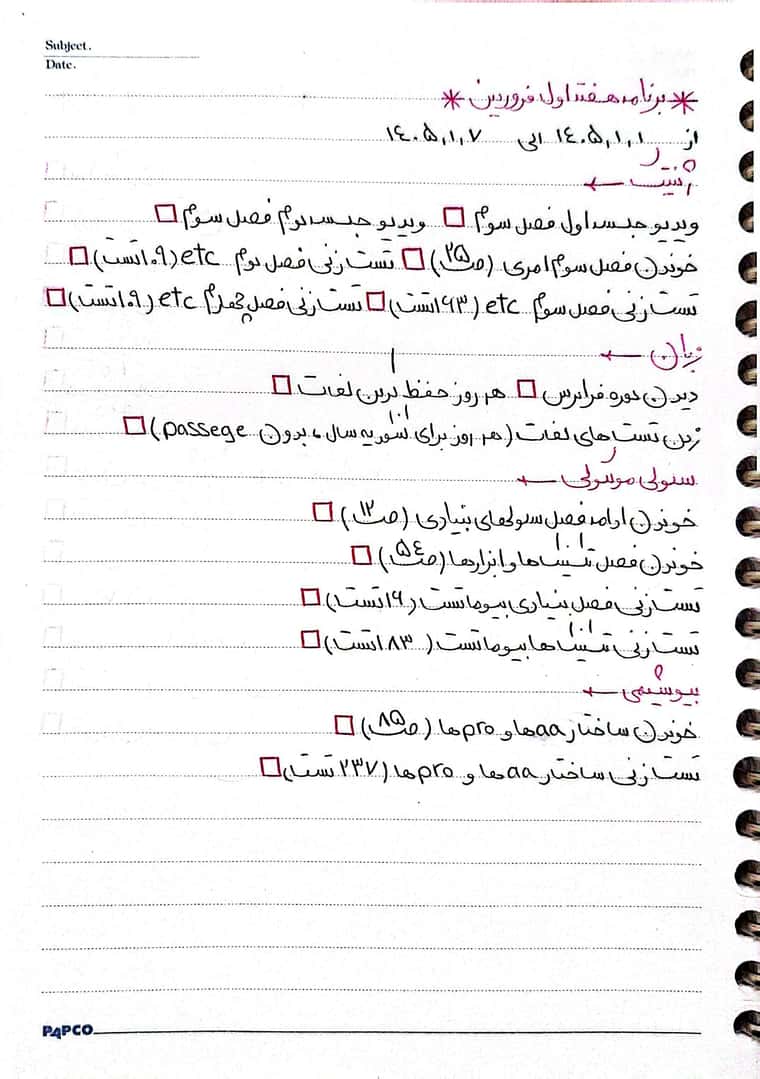 Subject.
Date.
* برنامه هفته اول فروردین *
از ۱۴۰۵,۱,۱ الی ۱۴۰۵,۱,۷
ژنتیک ←
ویدیو جلسه اول فصل سوم □ ویدیو جلسه دوم فصل سوم □
خوندن فصل سوم امری (۲۵ص) □ تست زنی فصل دوم etc (۱۰۹تست) □
تست زنی فصل سوم etc (۱۶۳تست) □ تست زنی فصل چهارم etc (۱۰۹تست) □
زبان ←
دیدن دوره فرادرس □ هر روز حفظ کردن لغات □
زدن تست های لغات (هر روز برای کشور یه سال، بدون passege) □
سلولی مولکولی ←
خوندن ادامه فصل سلولهای بنیادی (۱۲ص) □
خوندن فصل تکنیکها و ابزارها (۵۴ص) □
تست زنی فصل بنیادی بیوماتست (۱۶تست) □
تست زنی تکنیک ها بیوماتست (۱۸۳تست) □
بیوشیمی ←
خوندن ساختار aaها و proها (۸۵ص) □
تست زنی ساختار aaها و proها (۲۳۷ تست) □
PAPCO